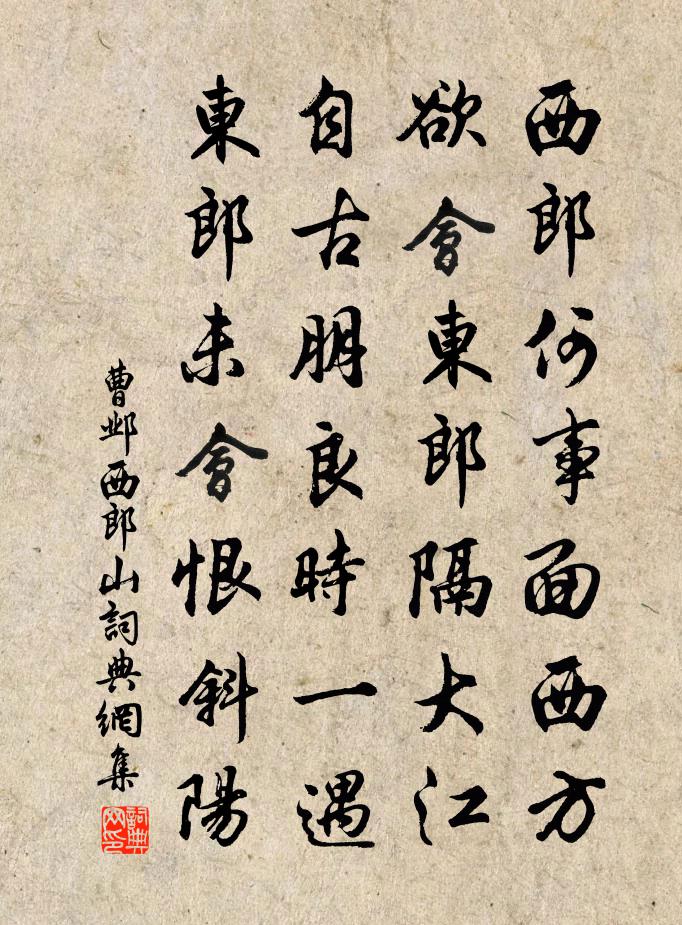 西郎何事面西方
欲會東郎隔大江
自古朋良時一遇
東郎未會恨斜陽
曹鄴西郎山詞典網集
詞典網印